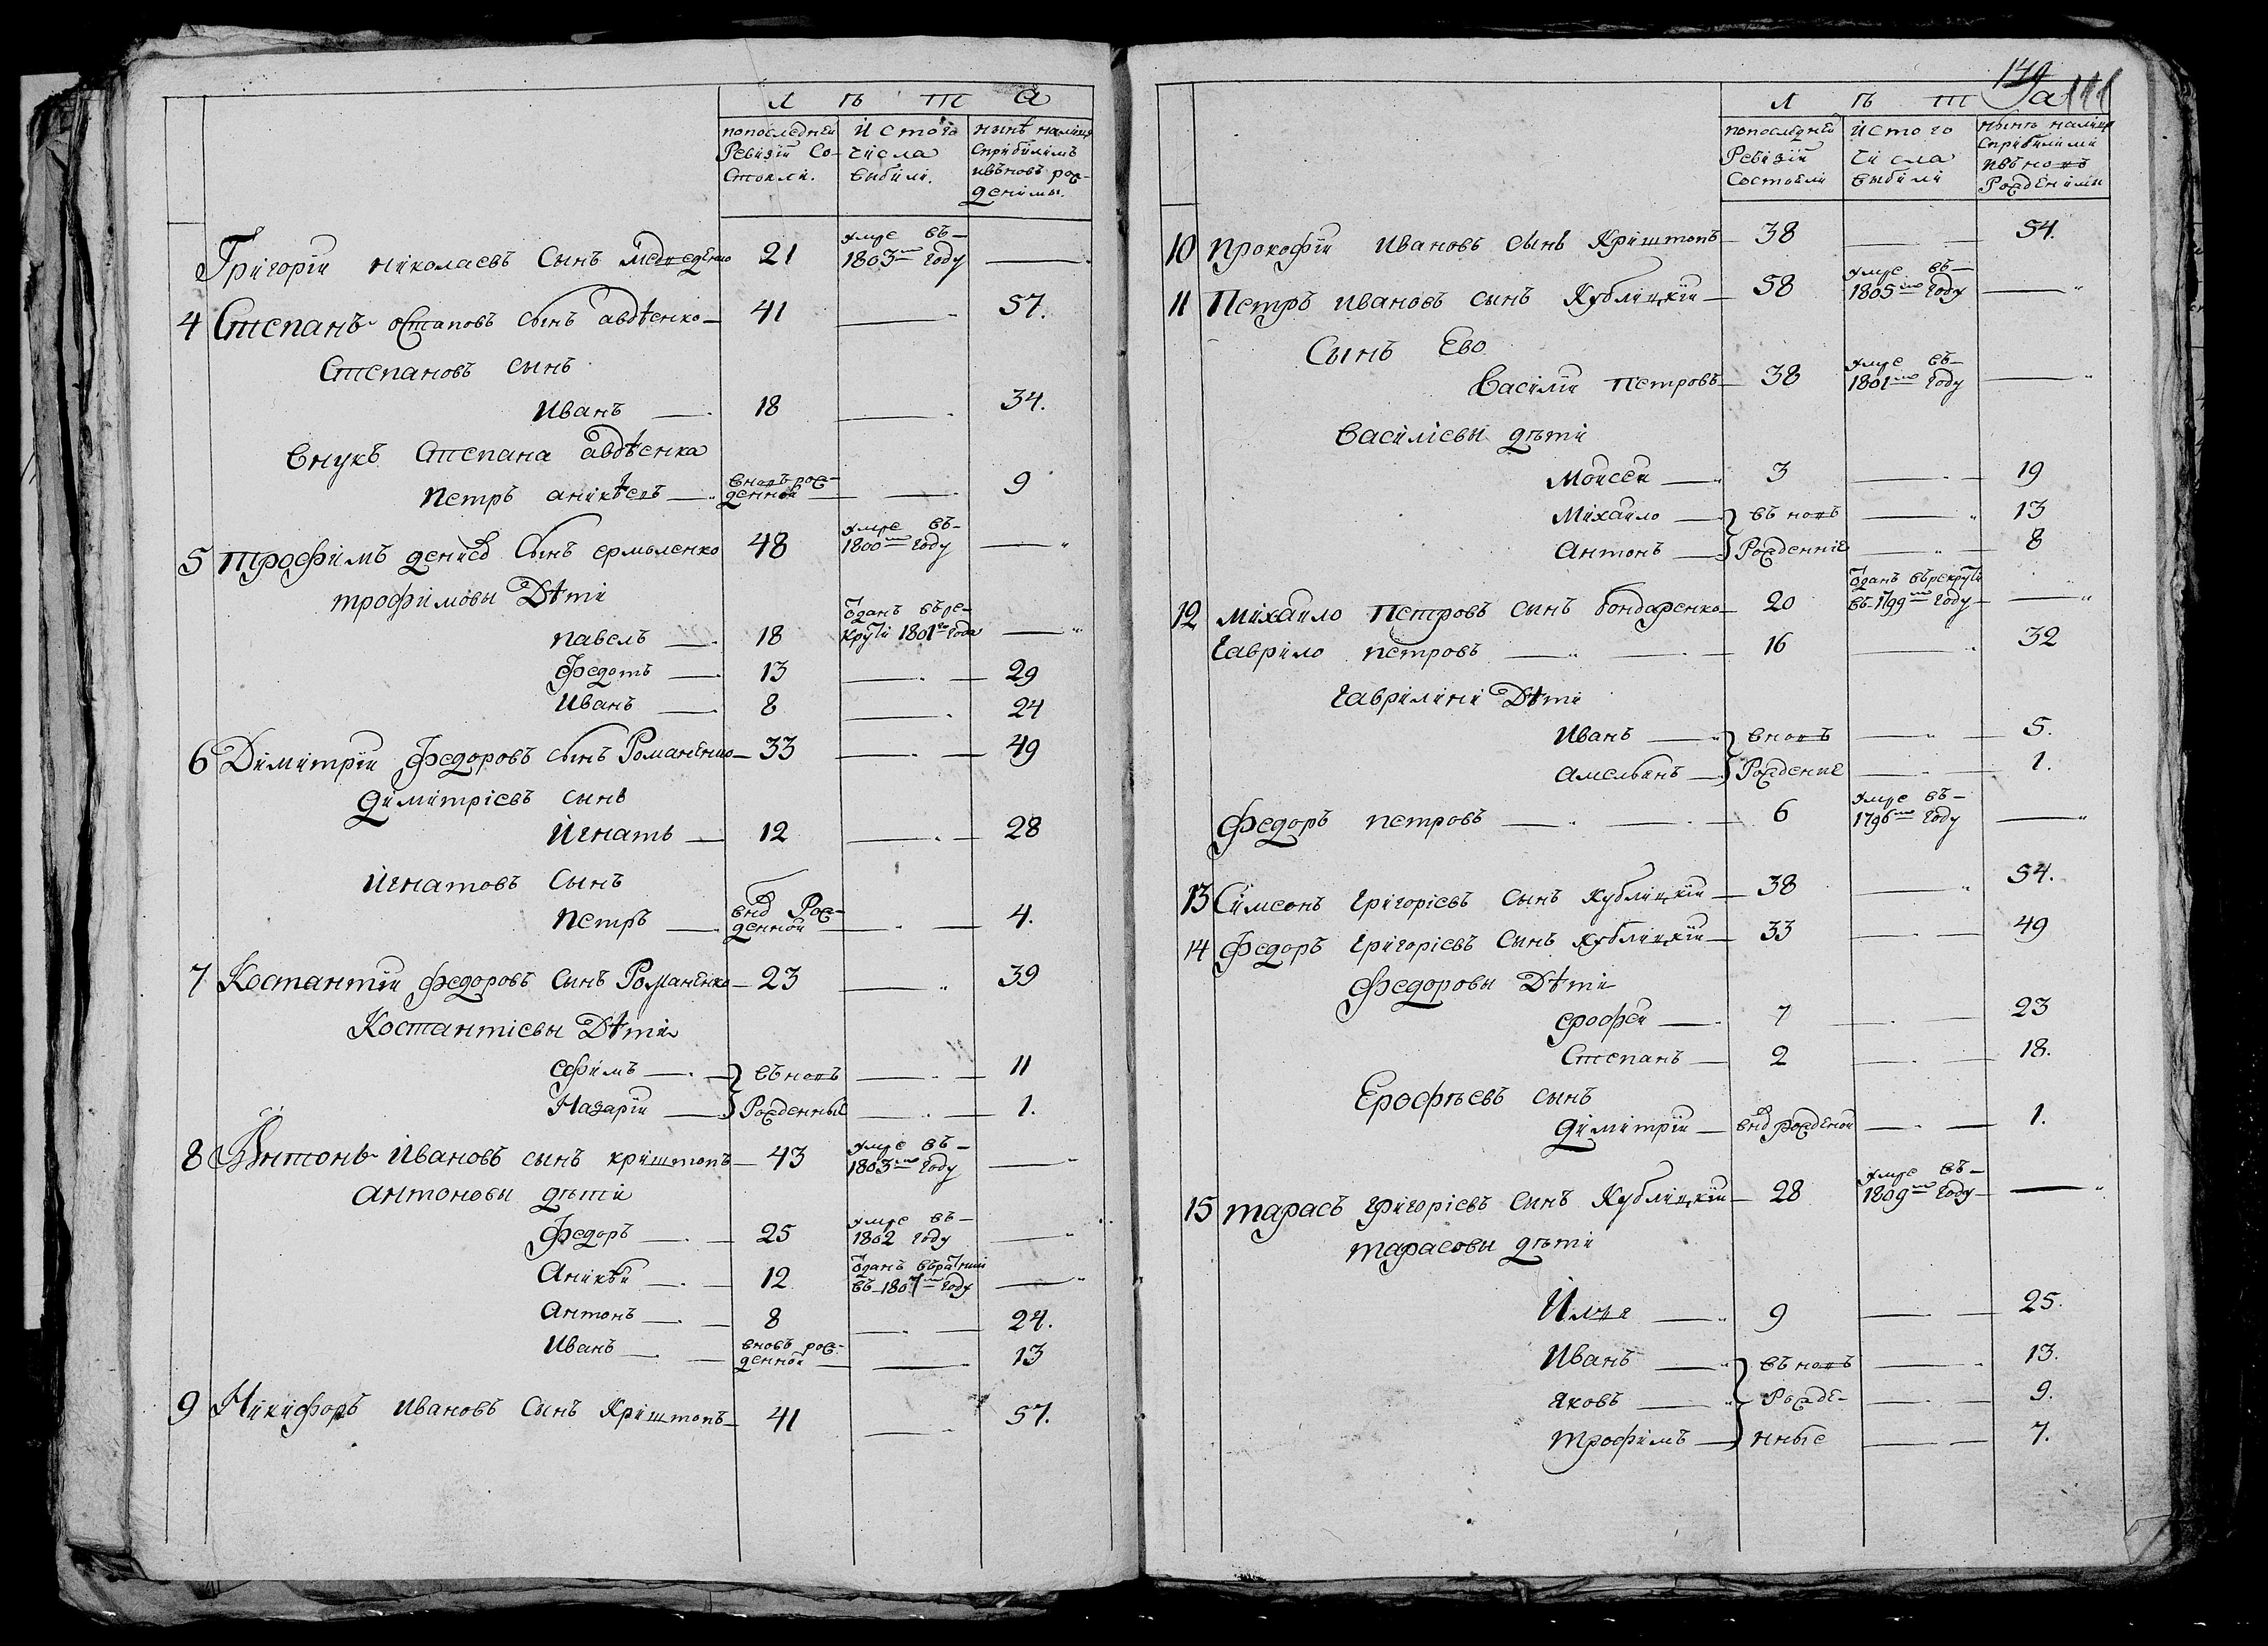 Л ѣ т а
попоследней Ревизіи Состояли.
Истого числа выбыли.
нынѣ налицо Сприбылимъ ивъновь рожденимы.
Григорій николаевъ Сынъ медведенко 21 умре въ 1803мъ году —
4 Степанъ остаповъ сынъ авдѣенко 41 — 57.
Степановъ сынъ
Иванъ 18 — 34.
Внукъ Степана авдѣенка
Петръ аникѣевъ вновь рожденной — 9
5 трофимъ денисо сынъ ермоленко 48 умре въ 1800мъ году —
трофимовы Дѣти
павелъ 18 отданъ въ рекруты 1801го года —
Федотъ 13 — 29
Иванъ 8 — 24
6 Димитрій Федоровъ сынъ Романенко 33 — 49
димитріевъ сынъ
Игнатъ 12 — 28
игнатовъ сынъ
петръ вно Рожденной — 4.
7 Костантій Федоровъ сынъ Романенко 23 — 39
Костантіевы Дѣти
ефимъ въновь — 11
Назарій Рожденные — 1.
8 Антонъ Ивановъ сынъ криштопъ 43 умре въ 1803мъ году —
антоновы дѣти
федоръ 25 умре въ 1802 году —
Аникѣй 12 отданъ въ ратники въ 1807м году —
Антонъ 8 — 24.
Иванъ вновь рожденной — 13
9 Никифоръ Ивановъ Сынъ Криштопъ 41 — 57.
111
Л ѣ т а
попоследней Ревизіи Состояли
истого числа выбыли
нынѣ налицо Сприбылими ивъновь Рожденимы
10 прокофій Ивановъ сынъ Криштопъ 38 — 54.
11 Петръ Ивановъ сынъ Кублицкій 58 умре въ 1805мъ году —
Сынъ Ево
Василій Петровъ 38 умре въ 1801мъ году —
Василіевы дѣти
Моисей 3 — 19
Михайло въновь — 13
Антонъ Рожденніе — 8
12 михайло Петровъ сынъ бондаренко 20 отданъ въ рекруты въ 1799мъ году —
Гаврило петровъ 16 — 32
Гаврилини Дѣти
Иванъ вновь — 5.
амельянъ Рожденіе — 1.
федоръ петровъ 6 умре въ 1796мъ году —
13 Симеонъ Григоріевъ сынъ Кублицкій 38 — 54.
14 федоръ Григоріевъ Сынъ кублицкій 33 — 49
федоровы Дѣти
ерофей 7 — 23
Степанъ 2 — 18.
Ерофѣевъ сынъ
димитрій вно рожденой — 1.
15 тарасъ григоріевъ Сынъ Кублицкій 28 умре въ 1809мъ году —
тарасовы дѣти
Илья 9 — 25.
Иванъ въновь — 13.
яковъ Рожде- — 9.
трофимъ нные — 7.